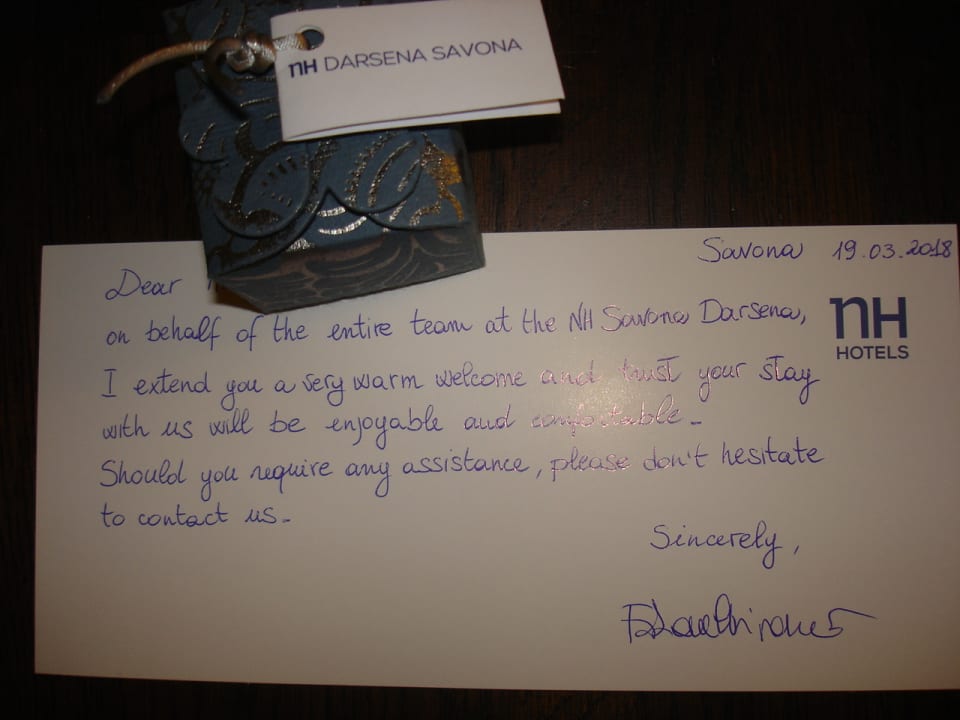 nH DARSENA SAVONA
Savona 19.03.2018
Dear
on behalf of the entire team at the NH Savona Darsena,
nH
HOTELS
I extend you a very warm welcome and trust your stay
with us will be enjoyable and comfortable.
Should you require any assistance, please don't hesitate
to contact us.
Sincerely,